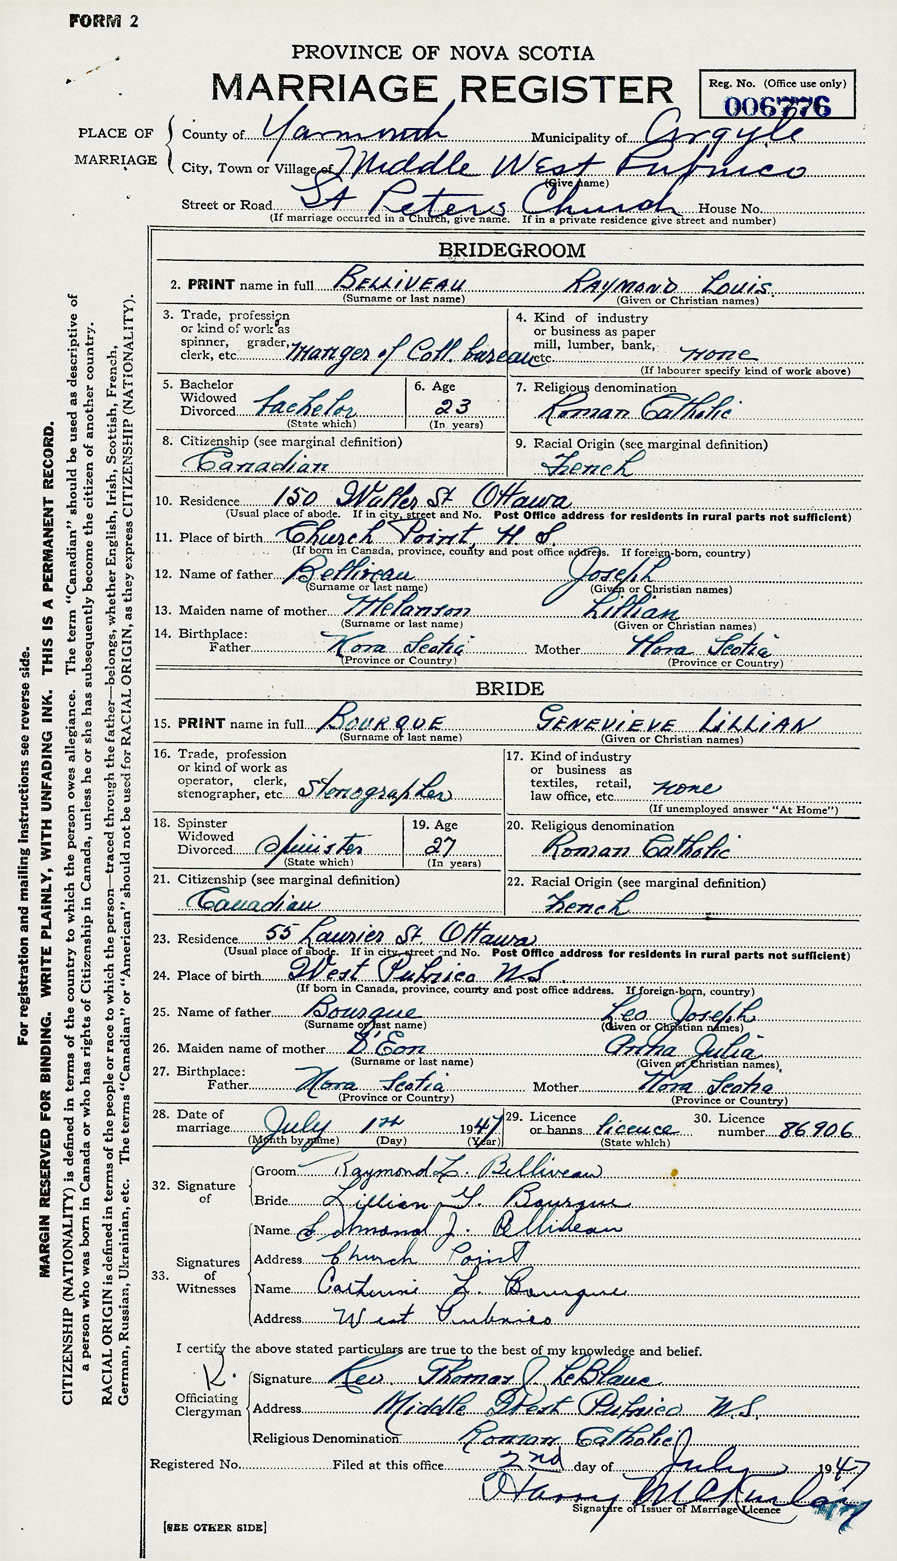 FORM 2
PROVINCE OF NOVA SCOTIA
MARRIAGE REGISTER
Reg. No. (Office use only)
006776
PLACE OF MARRIAGE
County of Yarmouth Municipality of Argyle
City, Town or Village of Middle West Pubnico
(Give name)
Street or Road St Peters Church House No.
(If marriage occurred in a Church, give name. If in a private residence give street and number)
BRIDEGROOM
2. PRINT name in full BELLIVEAU RAYMOND LOUIS.
(Surname or last name) (Given or Christian names)
3. Trade, profession or kind of work as spinner, grader, clerk, etc. Manger of Coll. bureau
4. Kind of industry or business as paper mill, lumber, bank, etc. none
(If labourer specify kind of work above)
5. Bachelor Widowed Divorced bachelor
(State which)
6. Age 23
(In years)
7. Religious denomination
Roman Catholic
8. Citizenship (see marginal definition)
Canadian
9. Racial Origin (see marginal definition)
French
10. Residence 150 Waller St Ottawa
(Usual place of abode. If in city, street and No. Post Office address for residents in rural parts not sufficient)
11. Place of birth Church Point, N S.
(If born in Canada, province, county and post office address. If foreign-born, country)
12. Name of father Belliveau Joseph
(Surname or last name) (Given or Christian names)
13. Maiden name of mother Melanson Lillian
(Surname or last name) (Given or Christian names)
14. Birthplace:
Father Nova Scotia Mother Nova Scotia
(Province or Country) (Province or Country)
BRIDE
15. PRINT name in full BOURQUE GENEVIEVE LILLIAN
(Surname or last name) (Given or Christian names)
16. Trade, profession or kind of work as operator, clerk, stenographer, etc. Stenographer
17. Kind of industry or business as textiles, retail, law office, etc. none
(If unemployed answer "At Home")
18. Spinster Widowed Divorced Spinister
(State which)
19. Age 27
(In years)
20. Religious denomination
Roman Catholic
21. Citizenship (see marginal definition)
Canadian
22. Racial Origin (see marginal definition)
French
23. Residence 55 Laurier St. Ottawa
(Usual place of abode. If in city, street and No. Post Office address for residents in rural parts not sufficient)
24. Place of birth West Pubnico N.S.
(If born in Canada, province, county and post office address. If foreign-born, country)
25. Name of father Bourque Leo Joseph
(Surname or last name) (Given or Christian names)
26. Maiden name of mother D'Eon Anna Julia
(Surname or last name) (Given or Christian names)
27. Birthplace:
Father Nova Scotia Mother Nova Scotia
(Province or Country) (Province or Country)
28. Date of marriage July 1st 1947
(Month by name) (Day) (Year)
29. Licence or banns licence
(State which)
30. Licence number 86906
32. Signature of
Groom Raymond L. Belliveau
Bride Lillian G. Bourque
33. Signatures of Witnesses
Name Edmond J. Belliveau
Address Church Point
Name Catherine L. Bourque
Address West Pubnico
I certify the above stated particulars are true to the best of my knowledge and belief.
Officiating Clergyman
Signature Rev. Thomas J. LeBlanc
Address Middle West Pubnico N.S.
Religious Denomination Roman Catholic
Registered No. Filed at this office 2nd day of July 1947
Harry McKinlay
Signature of Issuer of Marriage Licence
[SEE OTHER SIDE]
For registration and mailing instructions see reverse side.
MARGIN RESERVED FOR BINDING. WRITE PLAINLY, WITH UNFADING INK. THIS IS A PERMANENT RECORD.
CITIZENSHIP (NATIONALITY) is defined in terms of the country to which the person owes allegiance. The term "Canadian" should be used as descriptive of
a person who was born in Canada or who has rights of Citizenship in Canada, unless he or she has subsequently become the citizen of another country.
RACIAL ORIGIN is defined in terms of the people or race to which the person—traced through the father—belongs, whether English, Irish, Scottish, French,
German, Russian, Ukrainian, etc. The terms "Canadian" or "American" should not be used for RACIAL ORIGIN, as they express CITIZENSHIP (NATIONALITY).